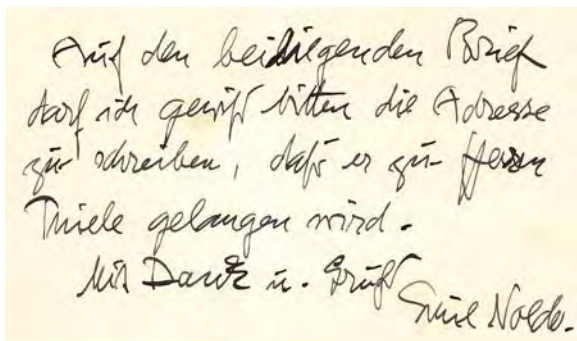 Auf den beiliegenden Brief
darf ich gewiß bitten die Adresse
zu schreiben, daß er zu Herrn
Thiele gelangen wird.
Mit Dank u. Gruß
Emil Nolde.